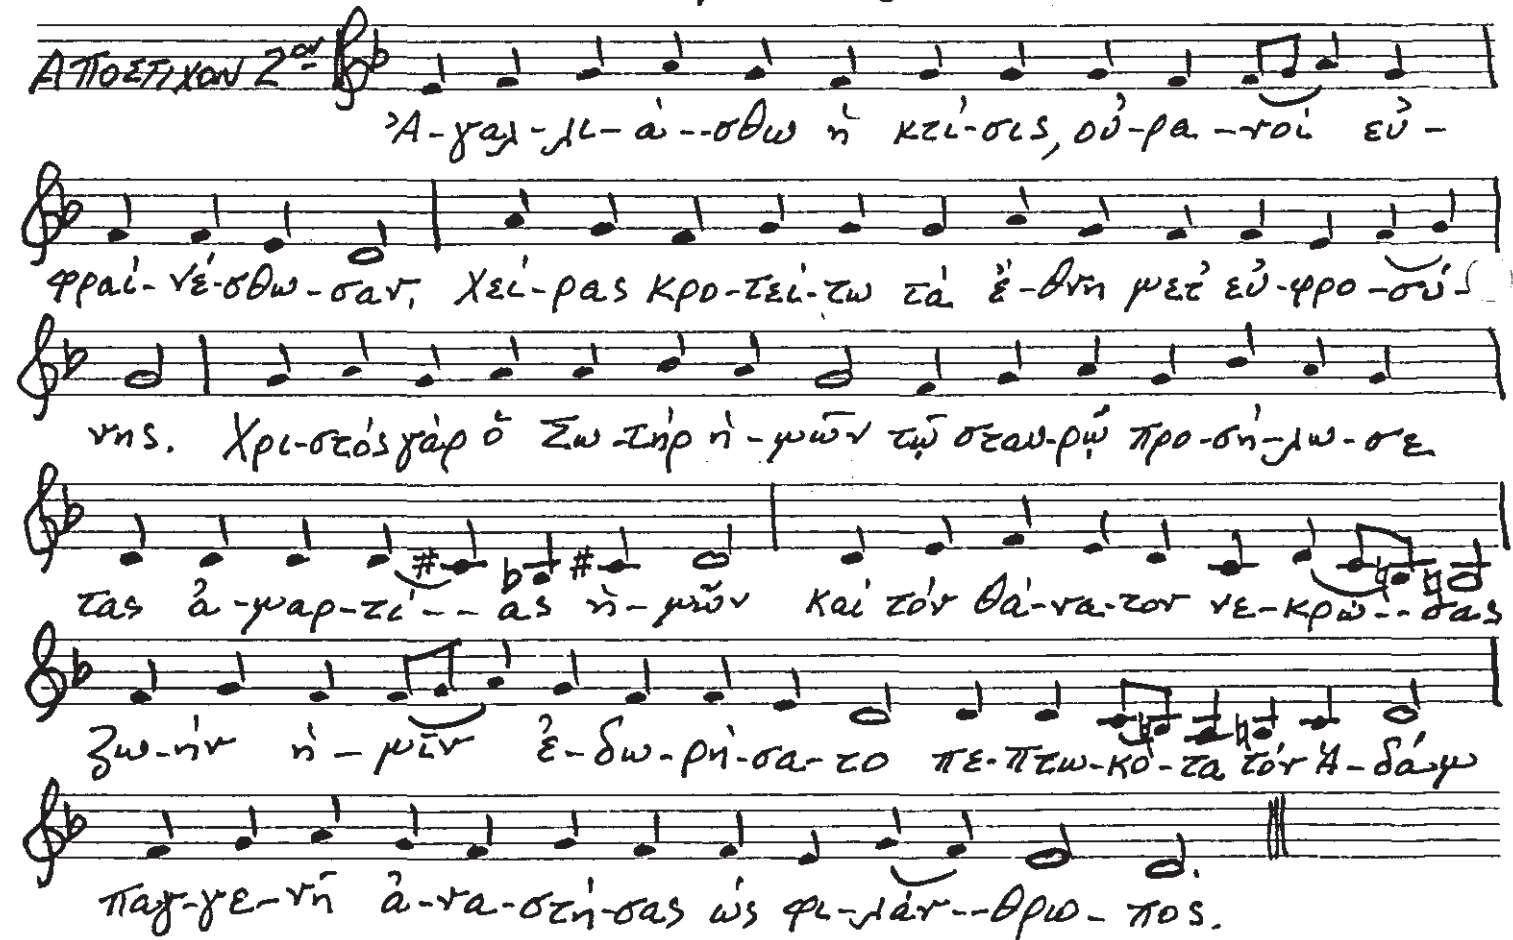 ΑΠΟΣΤΙΧΟΝ 2ον
Ἀ-γαλ-λι-ά--σθω ἡ κτί-σις, οὐ-ρα-νοί εὐ-
φραί-νέ-σθω-σαν, χεί-ρας κρο-τεί-τω τά ἔ-θνη μετ' εὐ-φρο-σύ-
νης. Χρι-στός γάρ ὁ Σω-τήρ ἡ-μῶν τῷ σταυ-ρῷ προ-σή-λω-σε
τας ἁ-μαρ-τί--ας ἡ-μῶν καί τόν θά-να-τον νε-κρώ--σας
ζω-ήν ἡ-μῖν ἐ-δω-ρή-σα-το πε-πτω-κό-τα τόν Ἀ-δάμ
παγ-γε-νῆ ἀ-να-στή-σας ὡς φι-λάν--θρω-πος.